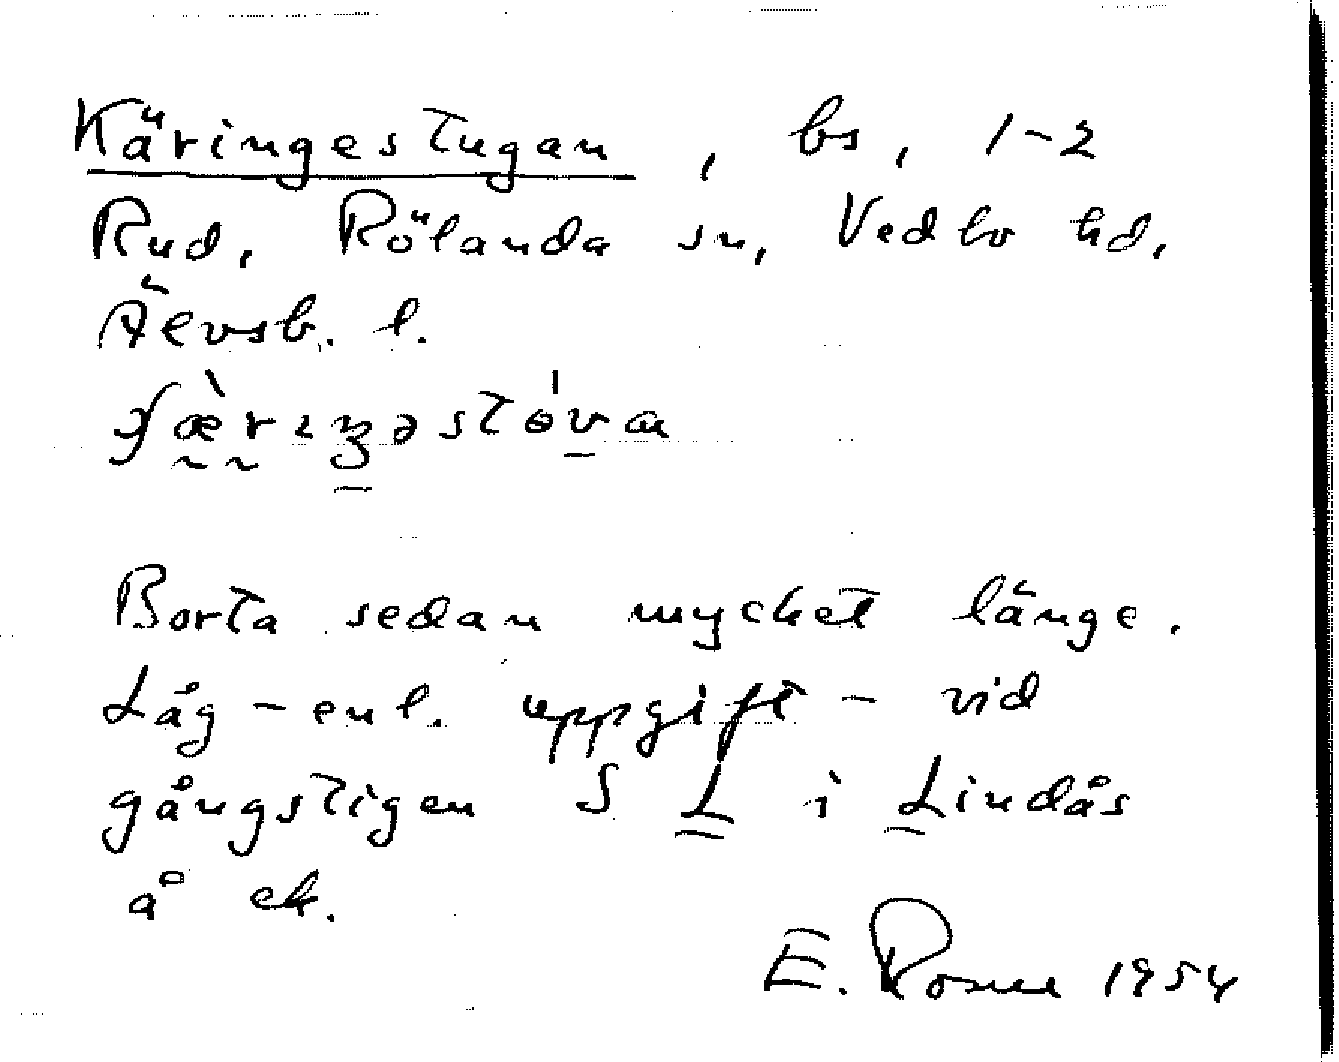 Käringestugan, bs, 1-2
Rud, Rölanda sn, Vedbo hd,
Älvsb. l.
Borta sedan mycket länge.
Låg - enl. uppgift - vid
gångstigen S L i Lindås
å ek.
E. Rosne 1954